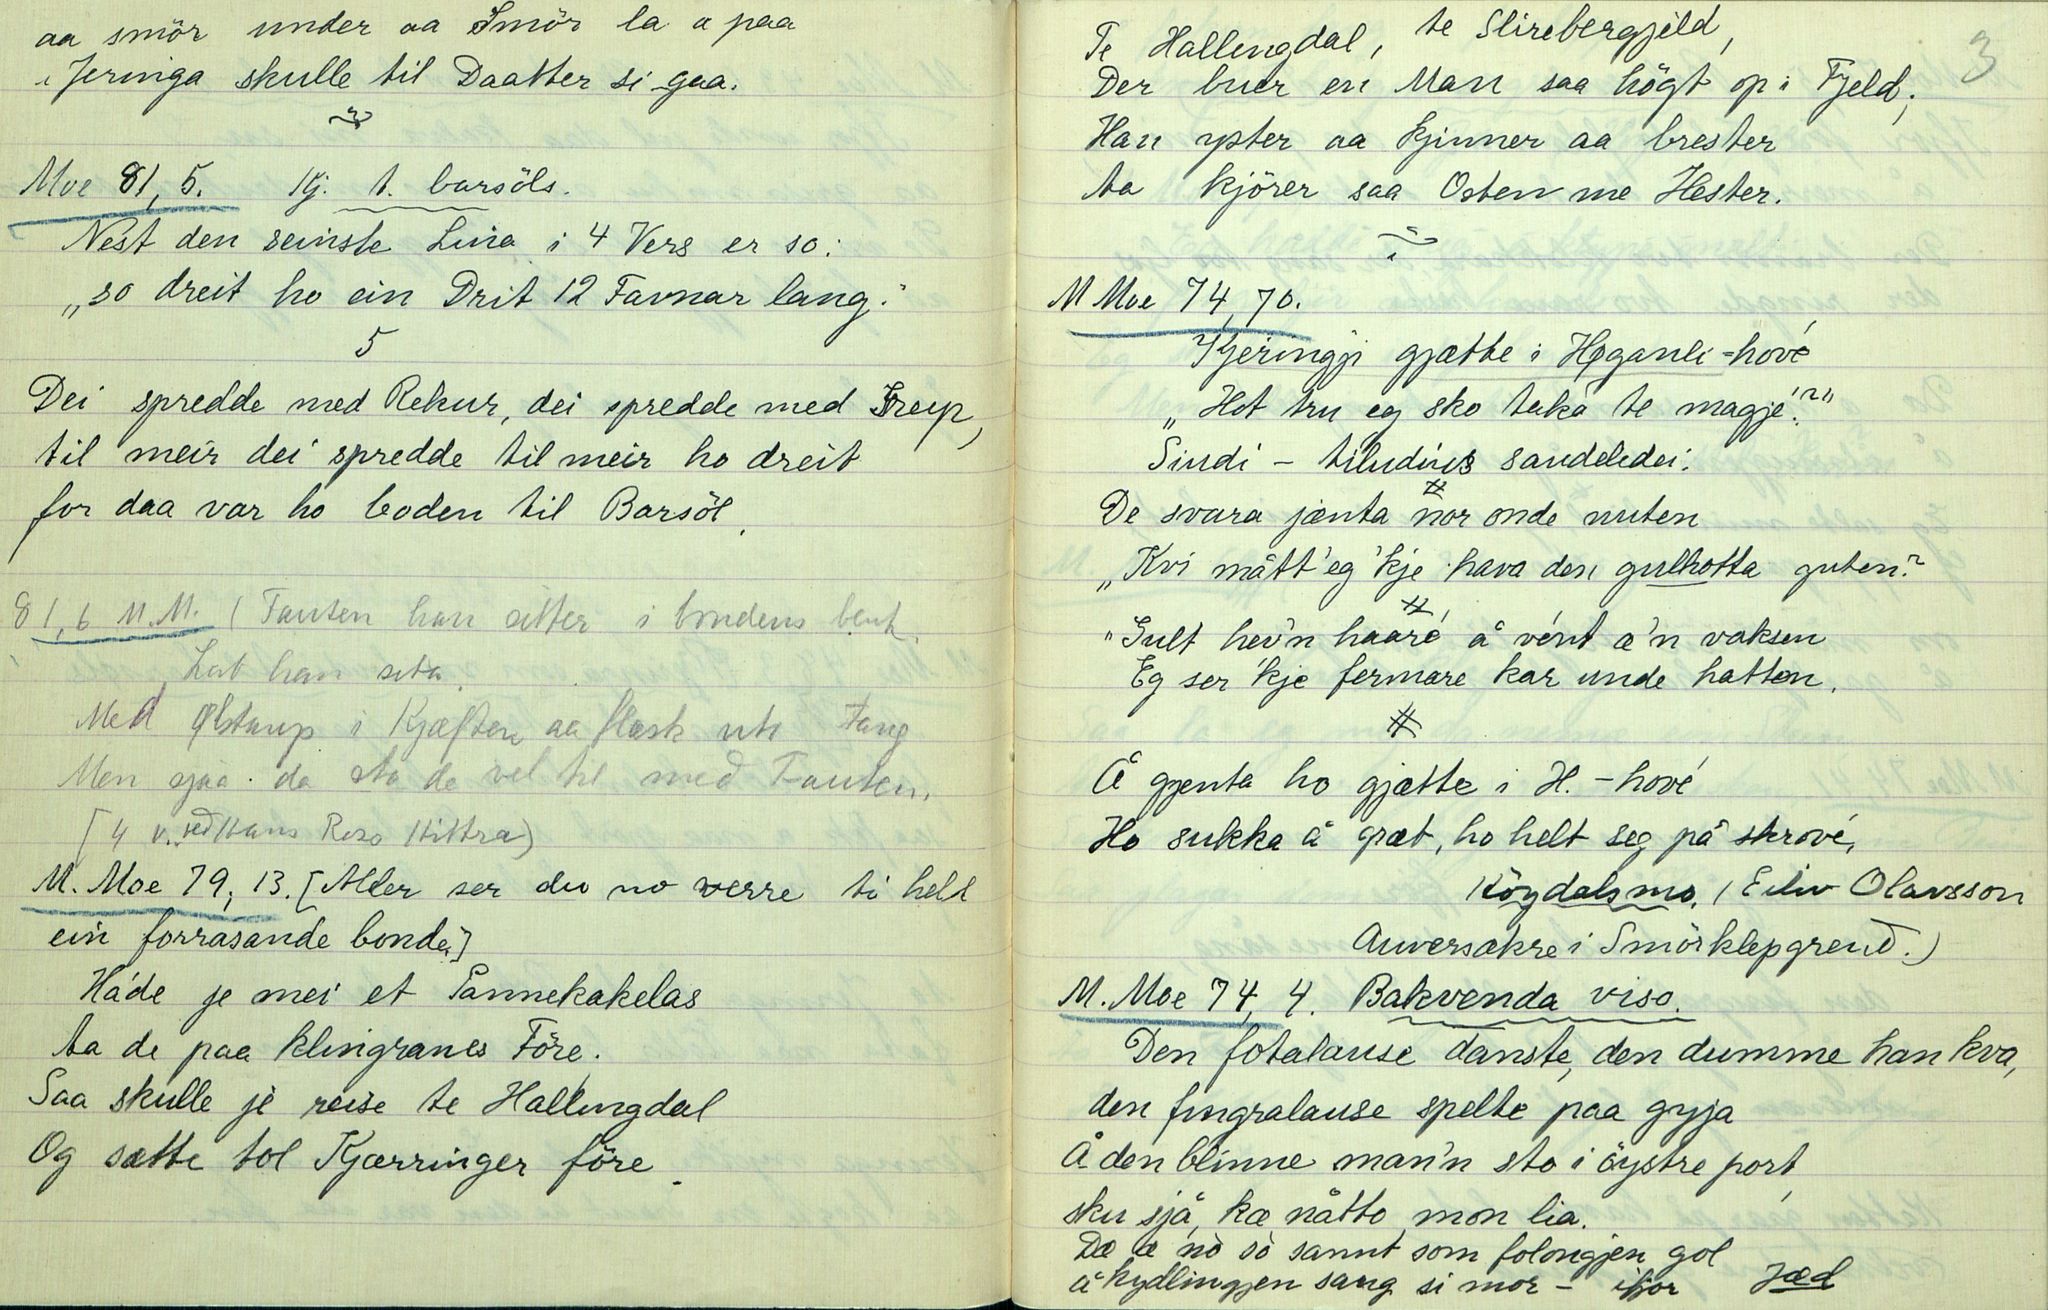 aa smör under aa Smör la a paa
Jeringa skulle til Daatter si gaa.
Moe 81, 5. Kj. t. barsöls.
Nest den seinste Lina i 4 Vers er so:
„so dreit ho ein Drit 12 Favnar lang."
5
Dei spredde med Rekur, dei spredde med Greip,
til meir dei spredde til meir ho dreit
for daa var ho boden til Barsöl.
81, 6 M.M. (Fauten han sitter i bondens benk
Lat han sita
Med Ølstaup i Kjæften aa flæsk uti Fang
Men sjaa da sto de vel til med Fauten.
M. Moe 79, 13. [Aller ser du no verre ti held
ein forrasande bonde.]
Háde je mei et Pannekakelas
ta de paa klingranes Före.
Saa skulle je reise te Hallingdal
Og sætte tol Kjærringer före.
3
Te Hallingdal, te Slirebergfjeld,
Der buer en Man saa högt op i Fjeld,
Han yster aa kjinner aa brester
ta kjörer saa Osten me Hester.
M Moe 74, 70.
Kjeringji gjætte i Høganli-hové
„Hot tru eg sko taka te magjé?"
Sindi - tiludius saudeledei.
De svara jænta nor onde nuten
„Kvi mått' eg 'kje hava den gulhotta guten?
"Gult hev'n haaré å vént æ'n vaksen
Eg ser 'kje fermare kar unde hatten.
Å gjenta ho gjætte i H. - hové
Ho sukka å græt, ho helt seg på skrové,
Höydalsmo. (Eiliv Olavsson
Auversækre i Smörklepgrend.)
M. Moe 74, 4. Bakvenda viso.
Den fotalause danste, den dumme han kva,
den fingralause spelte paa gyja
Å den blinne man'n sto i öystre port,
sku sjå, kæ nåtto mon lia.
Dæ æ nò sò sannt som folongjen gol
å kydlingjen sang si mor - ifjor Jæd